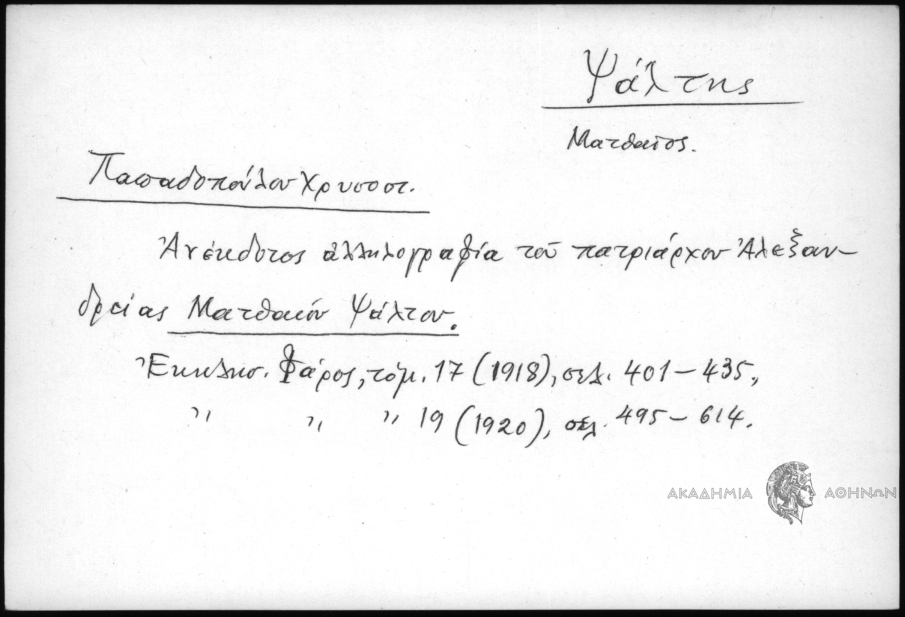 Ψάλτης
Ματθαῖος.
Παπαδοπούλου Χρυσοστ.
Ἀνέκδοτος ἀλληλογραφία τοῦ πατριάρχου Ἀλεξαν-
δρείας Ματθαίου Ψάλτου.
Ἐκκλησ. Φάρος, τόμ. 17 (1918), σελ. 401-435,
〃 〃 〃 19 (1920), σελ. 495-614.
ΑΚΑΔΗΜΙΑ ΑΘΗΝΩΝ